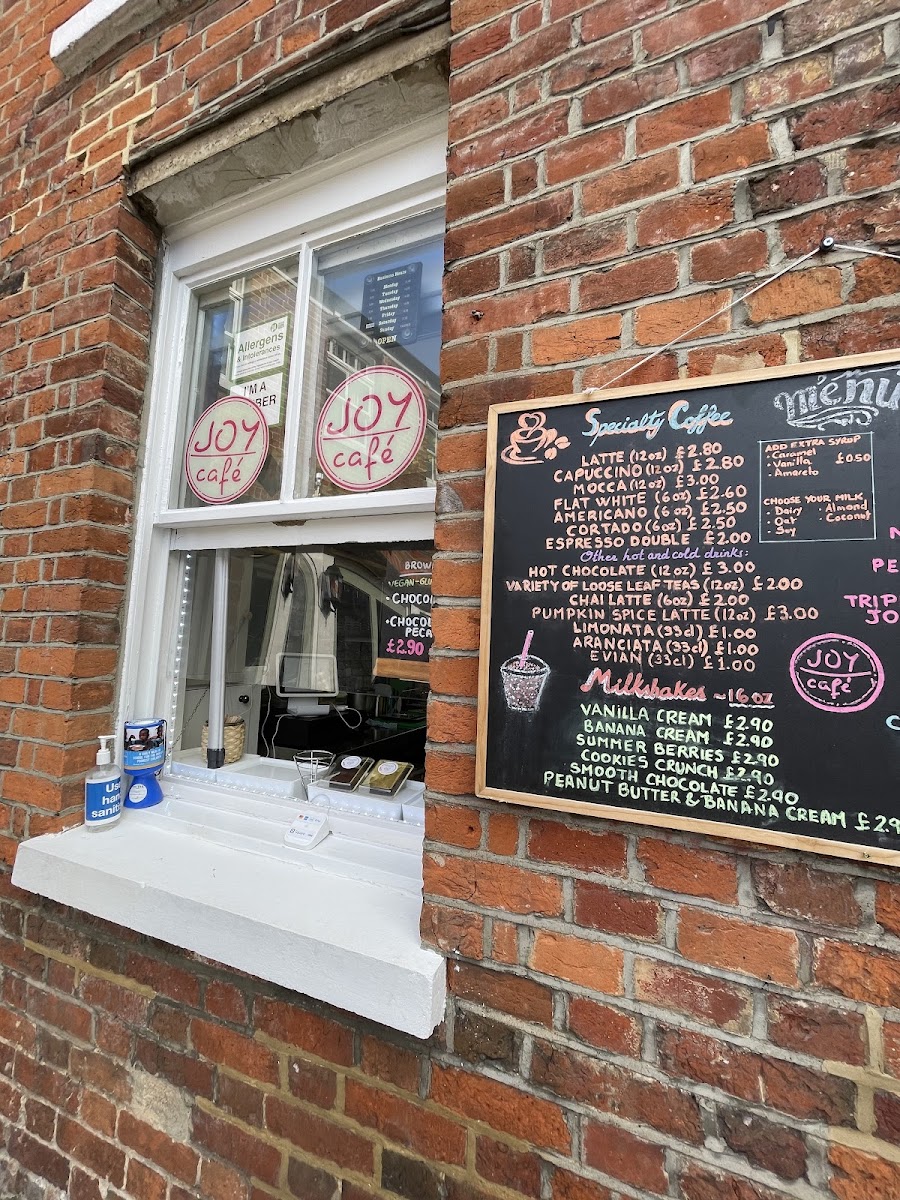 Business Hours
Monday
Tuesday
Wednesday
Thursday
Friday
Saturday
Sunday
OPEN
Allergens
& Intolerances
I'M A
JOY
café
JOY
café
BROW
VEGAN-GLU
• CHOCOL
• CHOCOL
PECA
£2.90
Use
hand
saniti
menu
Specialty Coffee
LATTE (12oz) £2.80
CAPUCCINO (12oz) £2.80
MOCCA (12oz) £3.00
FLAT WHITE (6oz) £2.60
AMERICANO (6oz) £2.50
CORTADO (6oz) £2.50
ESPRESSO DOUBLE £2.00
Other hot and cold drinks:
HOT CHOCOLATE (12oz) £3.00
VARIETY OF LOOSE LEAF TEAS (12oz) £2.00
CHAI LATTE (6oz) £2.00
PUMPKIN SPICE LATTE (12oz) £3.00
LIMONATA (33cl) £1.00
ARANCIATA (33cl) £1.00
EVIAN (33cl) £1.00
Milkshakes ~16oz
VANILLA CREAM £2.90
BANANA CREAM £2.90
SUMMER BERRIES £2.90
COOKIES CRUNCH £2.90
SMOOTH CHOCOLATE £2.90
PEANUT BUTTER & BANANA CREAM £2.9
ADD EXTRA SYRUP
• Caramel
• Vanilla £0.50
• Amareto
CHOOSE YOUR MILK
• Dairy • Almond
• Oat • Coconut
• Soy
PE
TRIP
JO
JOY
café